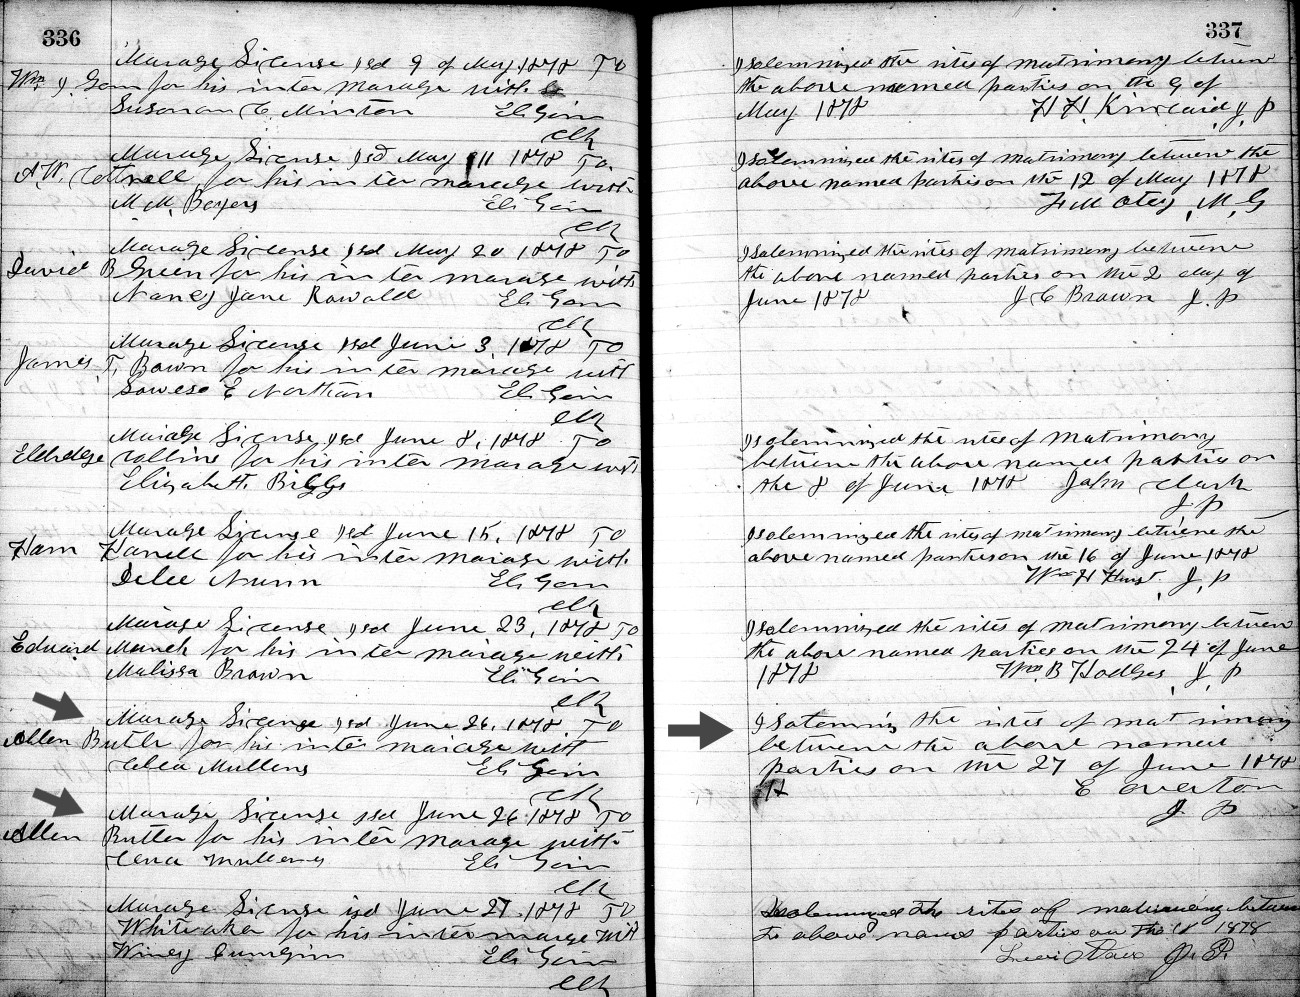 336
Marage License isd 9 of May 1878 To
Wm J Goin for his inter marage with
Susanan C. Minton Eli Goin
clk
Marage License isd May 11 1878 To
A.W. Cottrell for his inter marage with
M M. Boyers Eli Goin
clk
Marage License isd May 20 1878 To
David B Green for his inter marage with
Nancy Jane Rowald Eli Goin
clk
Marage License isd June 3, 1878 To
James T. Bown for his inter marage with
E Northan Eli Goin
clk
Marage License isd June 8, 1878 To
Eldridge Colline for his inter marage with
Elizabeth Briggs
Marage License isd June 15, 1878 To
Ham Harrell for his inter marage with
Delee Nunn Eli Goin
clk
Marage License isd June 23, 1878 To
Edward Munch for his inter marage with
Malissa Brown Eli Goin
clk
Marage License isd June 26, 1878 To
Allen Butler for his inter marage with
Mullens Eli Goin
clk
Marage License isd June 26 1878 To
Allen Butler for his inter marage with
Mullens Eli Goin
clk
Marage License isd June 27, 1878 To
Whiteaker for his inter marage with
Winey Eli Goin
clk
337
I solemnized the rites of matrimony between
the above named parties on the 9 of
May 1878 H H. Kincaid J, P
I solemnized the rites of matrimony between the
above named parties on the 12 of May 1878
F M Otey, M, G
I Solemnized the rites of matrimony between
the above named parties on the 2 day of
June 1878 J C Brown J. P
I solemnized the rites of Matrimony
between the above named parties on
the 8 of June 1878 John Clark
J P
I solemnized the rites of matrimony between the
above named parties on the 16 of June 1878
Wm H Hurst, J, P
I solemnized the rites of matrimony between
the above named parties on the 24 of June
1878 Wm B Hodges, J, P
I the rites of matrimony
between the above named
parties on the 27 of June 1878
E Overton
J. P
Solemnized the rites of matrimony between
the above named parties on the 1878
Levi J. P.